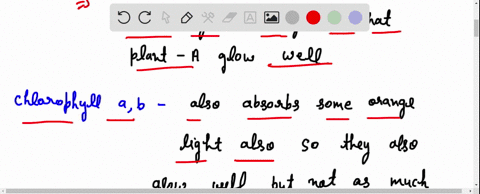 hat
plant - A glow well
chlorophyll a,b - also absorbs some orange
light also so they also
glow well but not as much